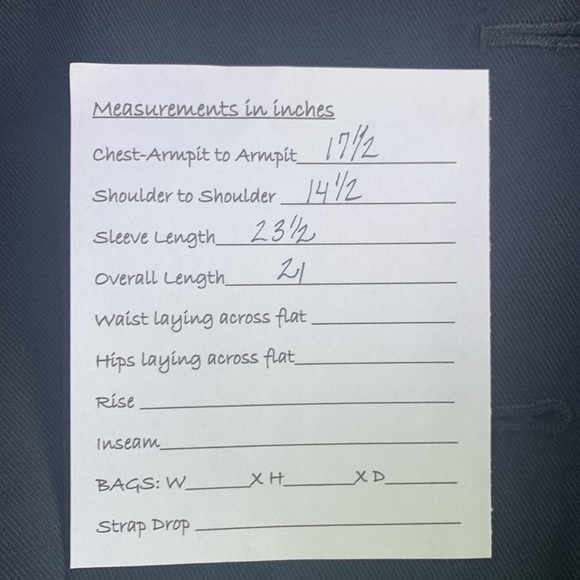 Measurements in inches
Chest-Armpit to Armpit 17 1/2
Shoulder to Shoulder 14 1/2
Sleeve Length 23 1/2
Overall Length 21
Waist laying across flat
Hips laying across flat
Rise
Inseam
BAGS: W______X H______X D______
Strap Drop